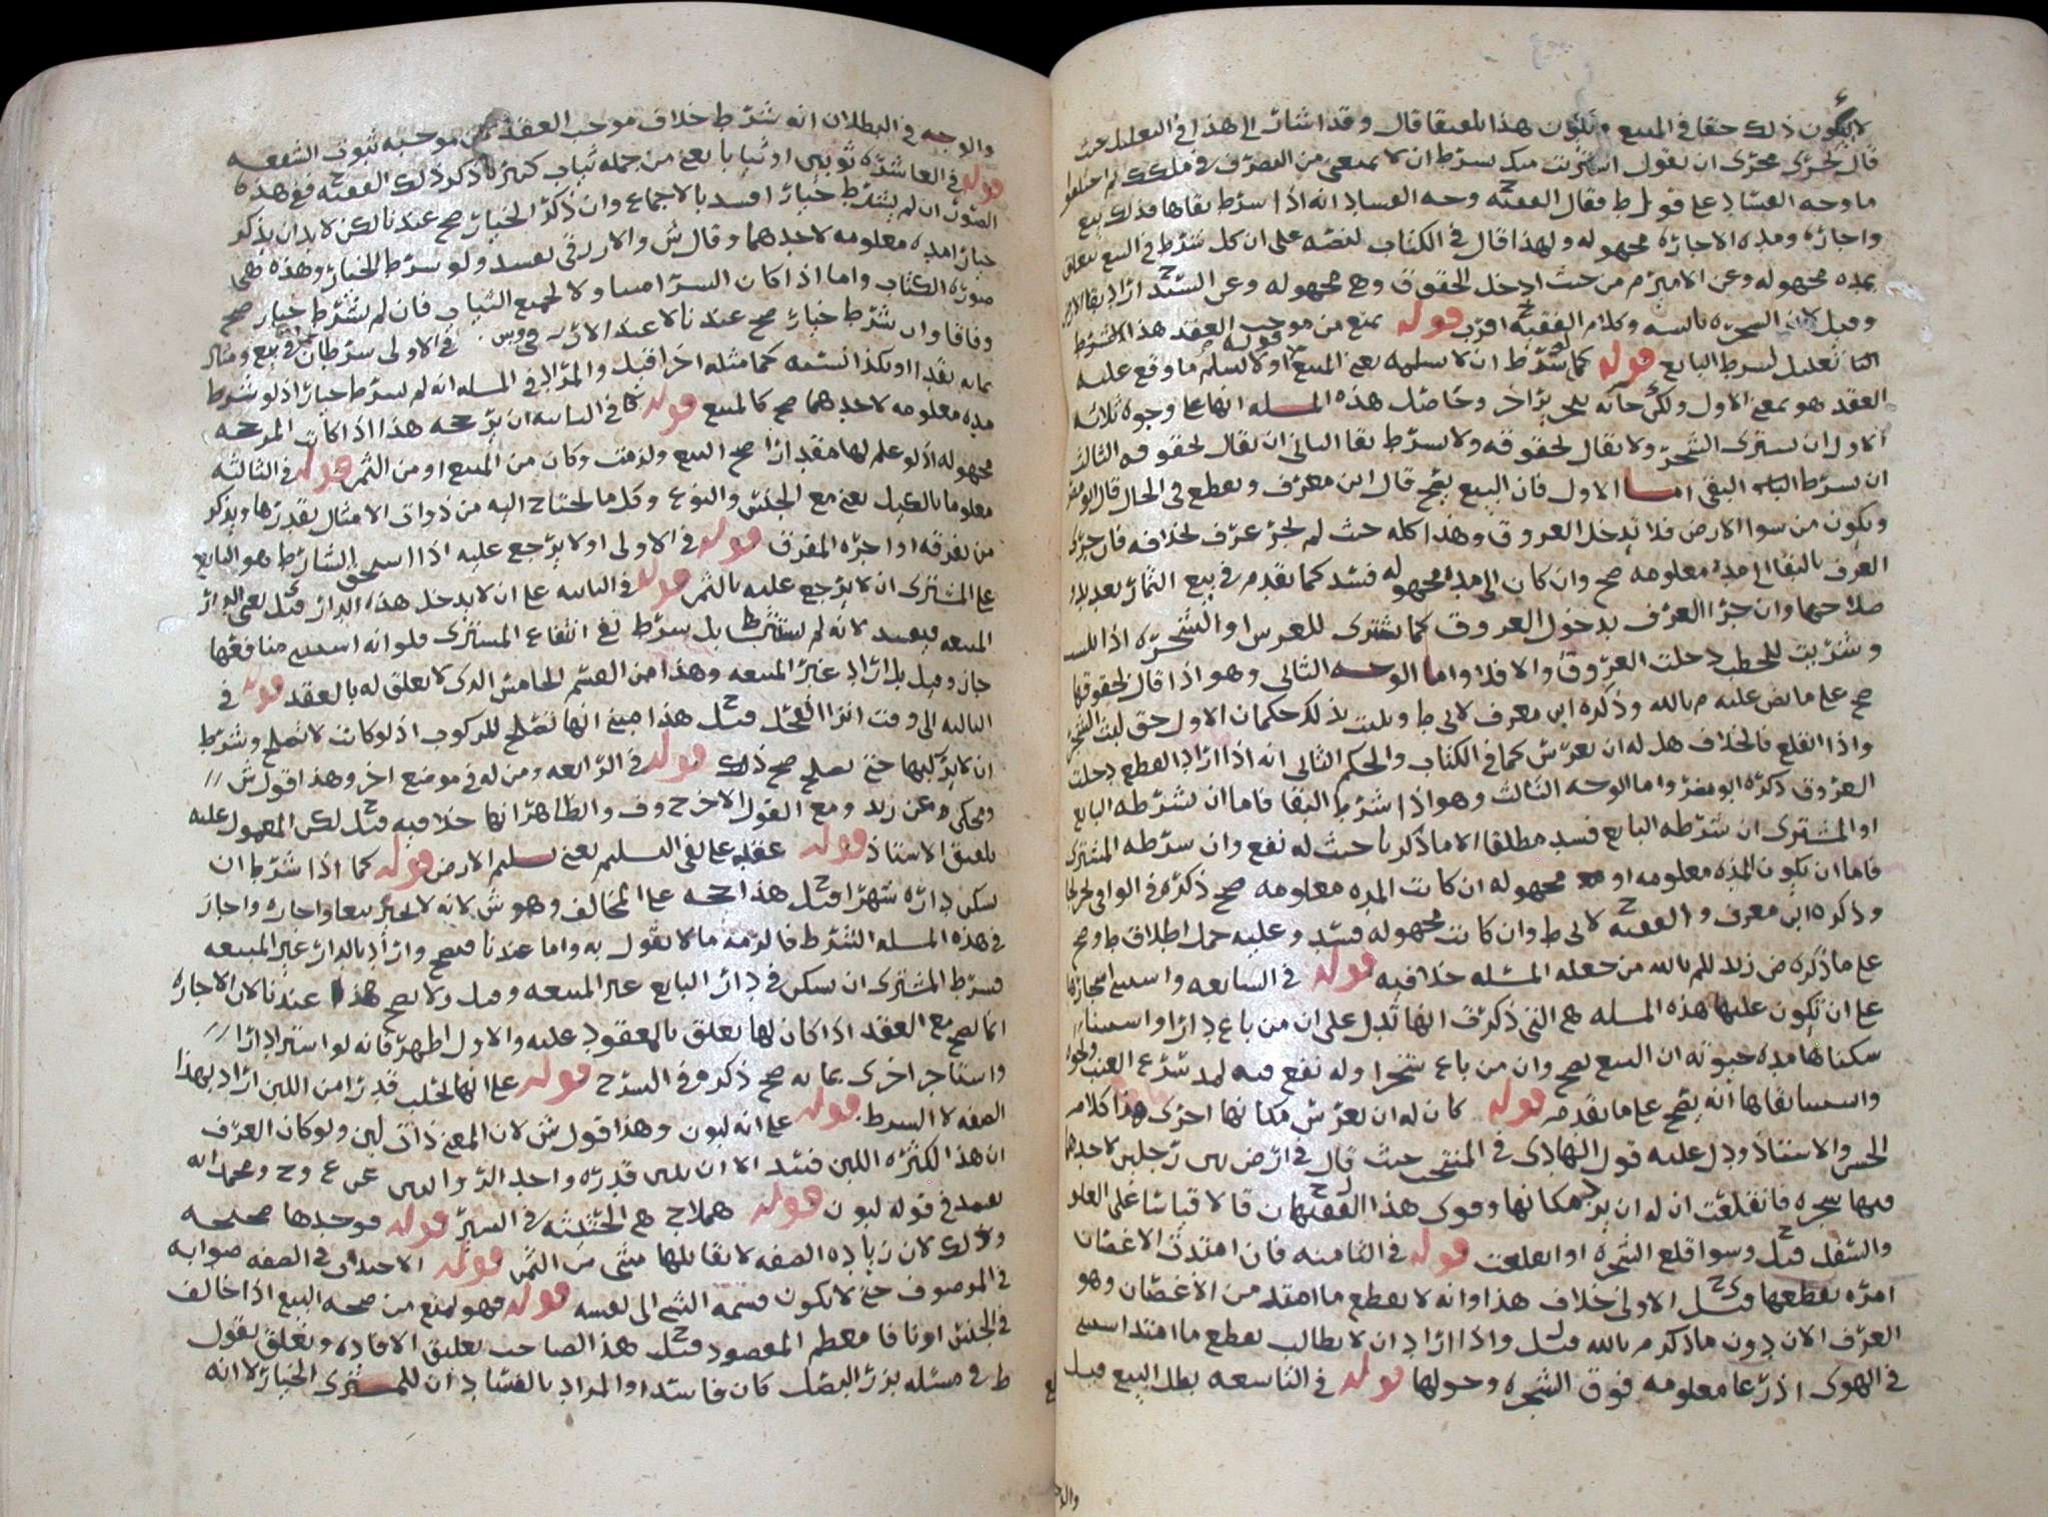 لا يكون ذلك حقا في المبيع وتكون هذا تلفيقا قال وقد اشار الى هذا في التعليل حيث
قال يجري مجرى ان يقول اشتريت منك بشرط ان لا تمنعني من التصرف في ملكك ثم اختلفوا
ما وجه الفساد على قول ط فقال الفقيه ح وجه الفساد انه اذا شرط بقاها فذلك بيع
واجارة ومدة الاجارة مجهولة ولهذا قال في الكتاب لنصه على ان كل شرط في البيع تعلق
بمدة مجهولة وعن الامير م من حيث ادخل الحقوق وهي مجهولة وعن السيد ح اراد بقا الارض
وقيل لان الشجرة نامية وكلام الفقيه ح اقرب قوله يمنع من موجب العقد هذا الشرط
الثا تعليل لشرط البايع قوله كما لو شرط ان لا يسلمه يعني المبيع قوله او لا يسلم ما وقع عليه
العقد هو بمعنى الاول ولكن جا به بتحرير اخر وحاصل هذه المسله انها على وجوه ثلاثه
الاول ان يشتري الشجر ولا يقال بحقوقه ولا يشرط بقا الثاني ان يقال بحقوقه الثالث
ان يشرط البقى اما الاول فان البيع يصح قال ابن معرف ويقطع في الحال قال ابو مضر
ويكون من سوا الارض فلا تدخل العروق وهذا كله حيث لم يجر عرف بخلافه فان جرى
العرف بالبقا الى مدة معلومه صح وان كان الى مدة مجهوله فسد كما تقدم في بيع الثمار بعد بدو
صلاحها وان جرا العرف بدخول العروق كما يشترى للغرس او الشجره اذا يبست
وشريت للحطب دخلت العروق والا فلا واما الوجه الثاني وهو اذا قال بحقوقها
صح على ما نص عليه م بالله وذكره ابن معرف لابي ط ويثبت بذلك حكمان الاول حق لبث الشجر
واذا انقلع فالخلاف هل له ان يغرس كما في الكتاب والحكم الثاني انه اذا اراد القطع دخلت
العروق ذكره ابو مضر واما الوجه الثالث وهو اذا شرط البقا فاما ان يشرطه البايع
او المشتري ان شرطه البايع فسد مطلقا الا ما ذكرنا حيث له نفع وان شرطه المشتري
فاما ان يكون المدة معلومه او مجهوله ان كانت المده معلومه صح ذكره في الوافي
وذكره ابن معرف والفقيه ح لابي ط وان كانت مجهوله فسد وعليه حمل اطلاق ط وصح
على ما ذكره ض زيد للم بالله من جعله المسله خلافيه قوله في السابعه واستثنى مجازها
على ان تكون عليها هذه المسله هي التي ذكرت انها تدل على ان من باع دارا واستثنا
سكناها مدة حيوته ان البيع يصح وان من باع شجرا وله نفع فيه لمد شرع العنب ونحوه
واستثنا بقاها انه يصح على ما تقدم قوله كان له ان يغرس مكانها اخرى هذا كلام
الحسن والاستاذ ودل عليه قول الهادي في المنتخب حيث قال في ارض بين رجلين لاحدهما
فيها شجره فانقلعت ان له ان يرد مكانها وقوى هذا الفقيهان ح قالا قياسا على العلو
والسفل قيل ح وسوا قلع الشجره او انقلعت قوله في الثامنه فان امتدت الاغصان
امره بقطعها قيل ح الاولى خلاف هذا وانه لا يقطع ما امتد من الاغصان وهو
العرف الان دون ما ذكر م بالله قيل واذا اراد ان لا يطالب بقطع ما امتد استثنى
في الهوى اذرعا معلومه فوق الشجره وحولها قوله في التاسعه بطل البيع قيل
والو
والوجه في البطلان انه شرط خلاف موجب العقد فمن موجبه ثبوت الشفعه
قوله في العاشره ثوبين او ثيابا يعني من جمله ثياب كثيره ذكر ذلك الفقيه ح ففي هذه
الصور ان لم يشترط خيارا فسد بالاجماع وان ذكر الخيار صح عندنا لكن لا بد ان يذكر
خيارا مده معلومه لاحدهما وقال ش والازرقي يفسد ولو شرط الخيار وهذه هي
صورة الكتاب واما اذا كان الشرا منها ولا لجميع الثياب فان لم يشرط خيار صح
وفاقا وان شرط خيار صح عندنا لا عند الازرقي وس. في الاولى شرطان في بيع ومثاله
بمايه نقدا او بكذا نسئه كما مثله اخرا قيل والمراد في المسله انه لم يشرط خيارا اذ لو شرط
مده معلومه لاحدهما صح كالمبيع قوله كما في الثانيه ان يرجحه هذا اذا كانت المرجحه
مجهوله اذ لو علم لها مقدارا صح البيع ولزمت وكان من المبيع او من الثمن قوله في الثالثه
معلوما بالكيل يعني مع الجنس والنوع وكل ما يحتاج اليه من ذوات الامثال بقدرها ويذكر
من يغرقه او اجره المغرق قوله في الاولى اولا يرجع عليه اذا استحق الشارط هو البايع
على المشتري ان لا يرجع عليه بالثمن قوله في الثانيه على ان لا يدخل هذه الدار قيل يعني الدار
المبيعه فيفسد لانه لم يستثن بل شرط نفي انتفاع المشتري فلو انه استثنى منافعها
جاز وقيل بل اراد غير المبيعه وهذا من القسم الخامس الذي لا تعلق له بالعقد قوله في
الثالثه الى وقت انزا الفحل قيل ح هذا مبني انها تصلح للركوب اذ لو كانت لا تصلح وشرط
ان لا يركبها حتى تصلح صح ذلك قوله في الرابعه ومن له في موضع اخر وهذا قول ش
ويحكى عن زيد ومع القول الاخر ح وف والظاهر انها خلافيه قيل ح لكن المعمول عليه
تلفيق الاستاذ قوله عقله على نفي التسليم يعني تسليم الارض قوله كما اذا شرط ان
يسكن داره شهرا قيل ح هذا حجه على المخالف وهو ش لانه لا يجيز بيعا واجاره واجاز
في هذه المسله الشرط فالزمه ما لا يقول به واما عندنا فيصح واراد بالدار غير المبيعه
فشرط المشتري ان يسكن في دار البايع غير المبيعه وقيل ولا يصح هذا عندنا لان الاجاره
انما تصح مع العقد اذا كان لها تعلق بالمعقود عليه والاول اظهر فانه لو اشترا دارا
واستاجر اخرى بمايه صح ذكره في الشرح قوله على انها تحلب قدرا من اللبن اراد بهذا
الصفه لا الشرط قوله على انه لبون وهذا قول ش لان المعنى ذات لبن ولو كان العرف
ان هذا لكثره اللبن فسد الا ان يبين قدره
يعمد في قوله لبون قوله هملاج هي الحثيثه في السير قوله فوجدها صحيحه
وذلك لان زياده الصفه لا يقابلها شي من الثمن قوله الاختلاف في الصفه صوابه
في الموصوف حتى لا يكون قسمه الشي الى نفسه قوله فهو يمنع من صحه البيع اذا خالف
في الجنس او نافا معظم المقصود قيل ح هذا لصاحب تعليق الافاده وتعلق بقول
ط في مسئله بزر البصل كان فاسدا والمراد بالفساد ان للمشتري الخيار لا انه